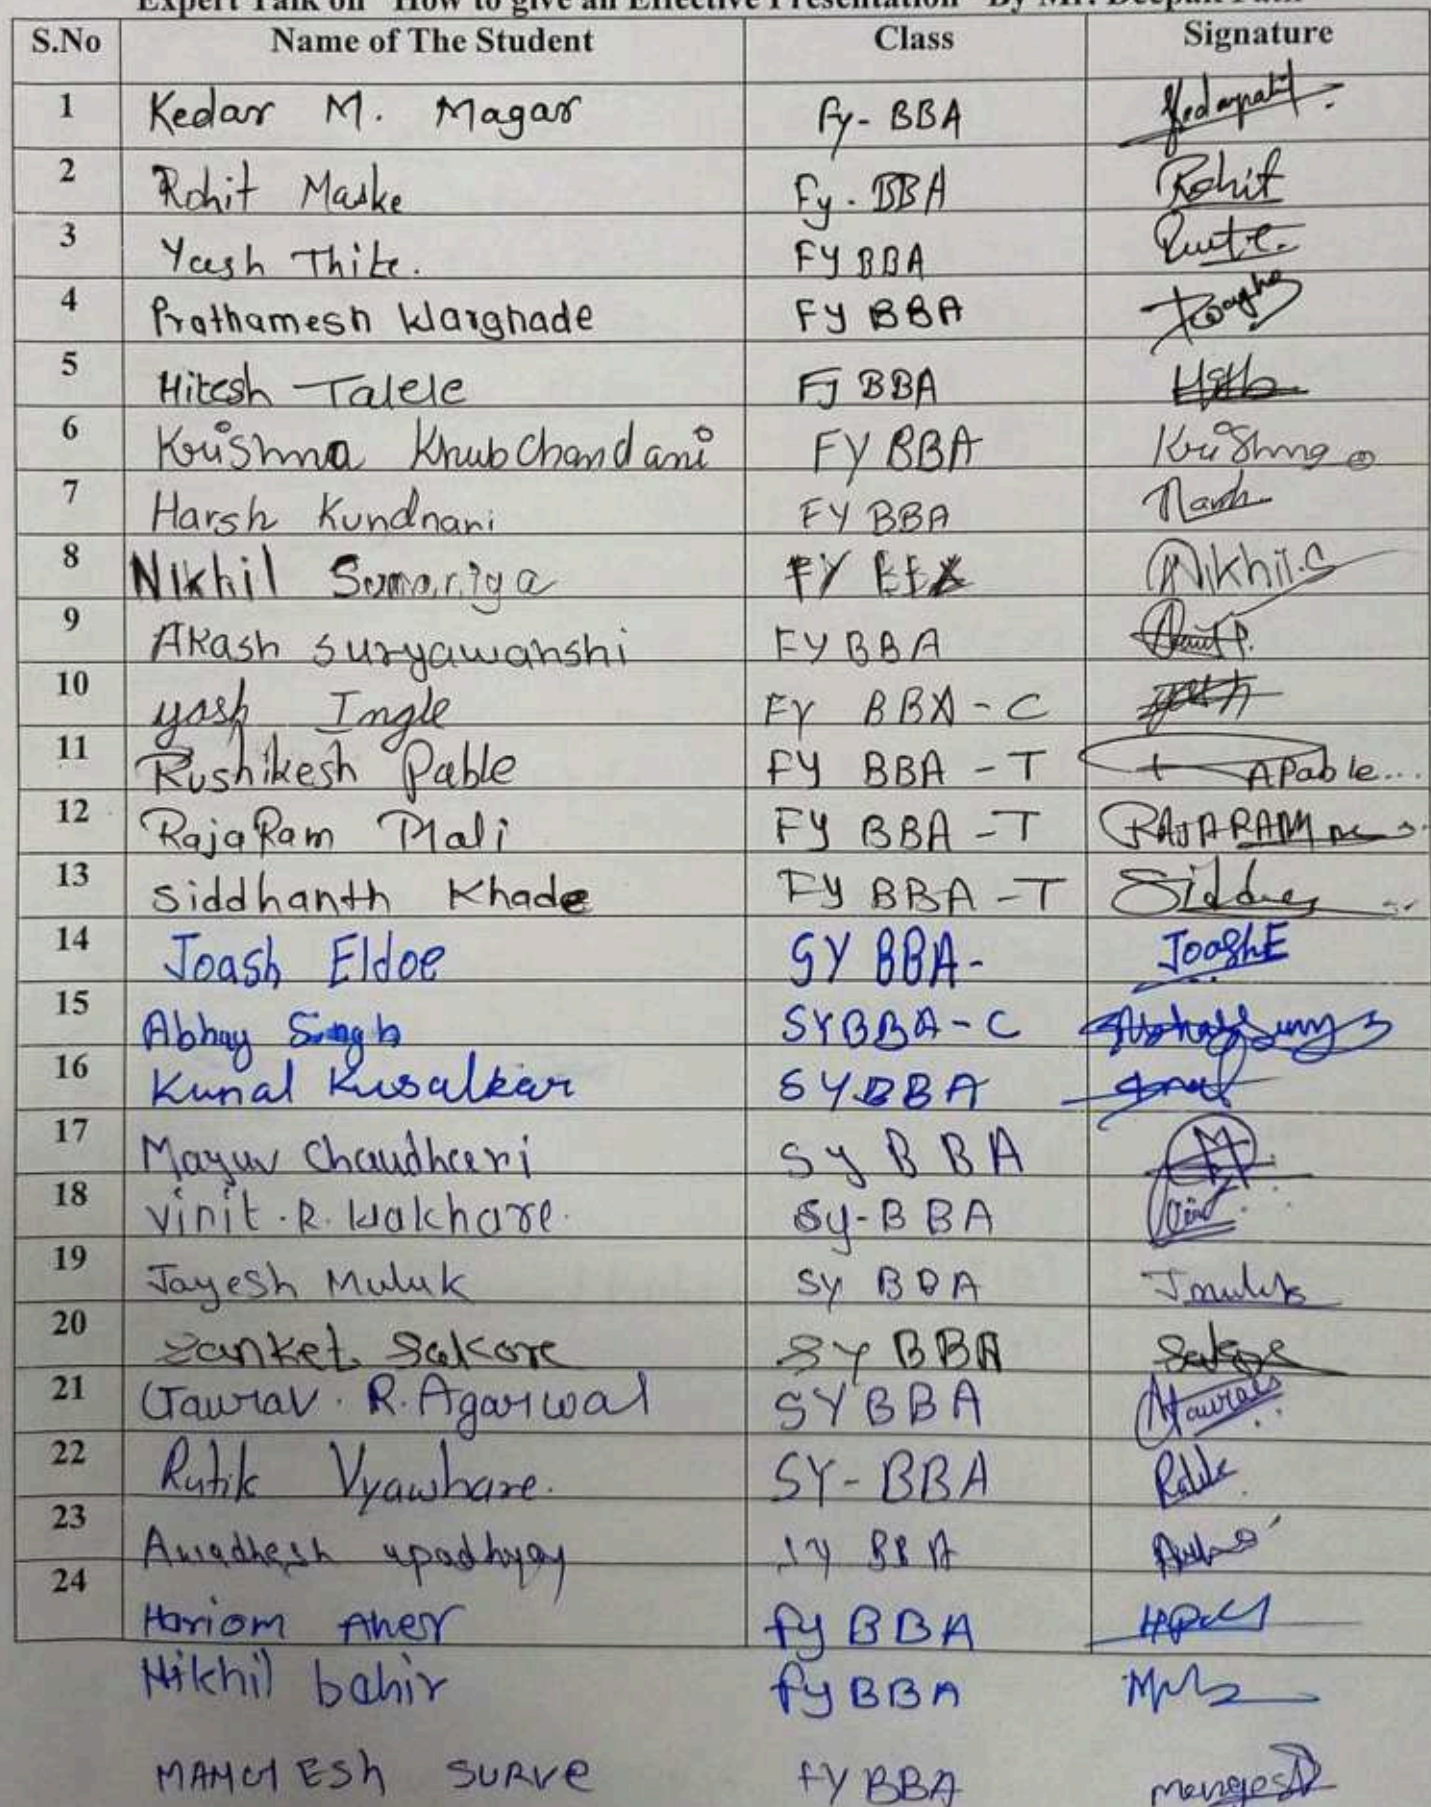 Expert Talk on "How to give an Effective Presentation" By Mr. Deepak Patil
S.No Name of The Student Class Signature
1 Kedar M. Magar Fy-BBA
2 Rohit Maske Fy. BBA Rohit
3 Yash Thite. FY BBA
4 Prathamesh Warghade FY BBA
5 Hitesh Talele FJ BBA
6 Krishna Khubchandani FY BBA Krishna
7 Harsh Kundnani FY BBA Harsh
8 Nikhil FY Nikhil.S
9 Akash Suryawanshi FY BBA
10 yash Ingle FY BBA - C
11 Rushikesh Pable FY BBA - T APable...
12 RajaRam Mali FY BBA - T RAJARAM
13 Siddhanth Khade FY BBA - T
14 Joash Eldoe SY BBA- JoashE
15 Abhay Singh SYBBA-C
16 Kunal Kusalkar SYBBA
17 Mayur Chaudhari SY BBA
18 Vinit.R.Wakhare. Sy-BBA
19 Jayesh Muluk SY BBA Jmuluk
20 Sanket Sakore SY BBA
21 Gaurav. R. Agarwal SYBBA Gaurav
22 Rutik Vyawhare. SY-BBA
23 Awadhesh upadhyay
24 Hariom Aher fy BBA
Nikhil bahir fy BBA
MANGESh SURVe FY BBA